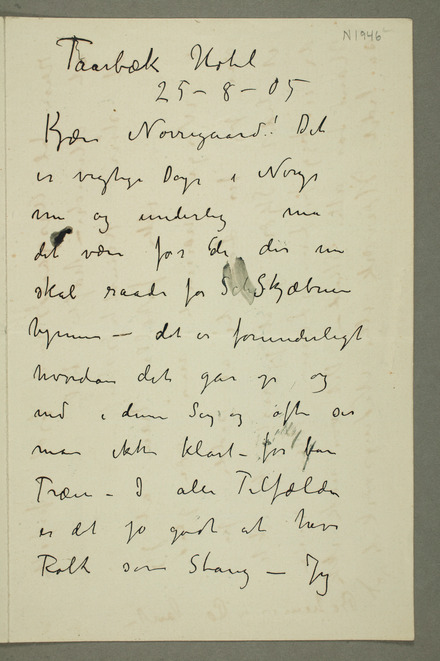 N 1946
Taarbæk Hotel
25-8-05
Kjære Nørregaard! Det
er vigtige Dage i Norge
nu og underlig maa
det være for Eder der nu
skal raade for Skjæbnen
– det er forunderligt
hvordan det gaar op og
ned i denne Sag og ofte ser
man ikke klart – for bare
Træer – I alle Tilfælde
er det jo godt at have
Folk som Stang – Jeg